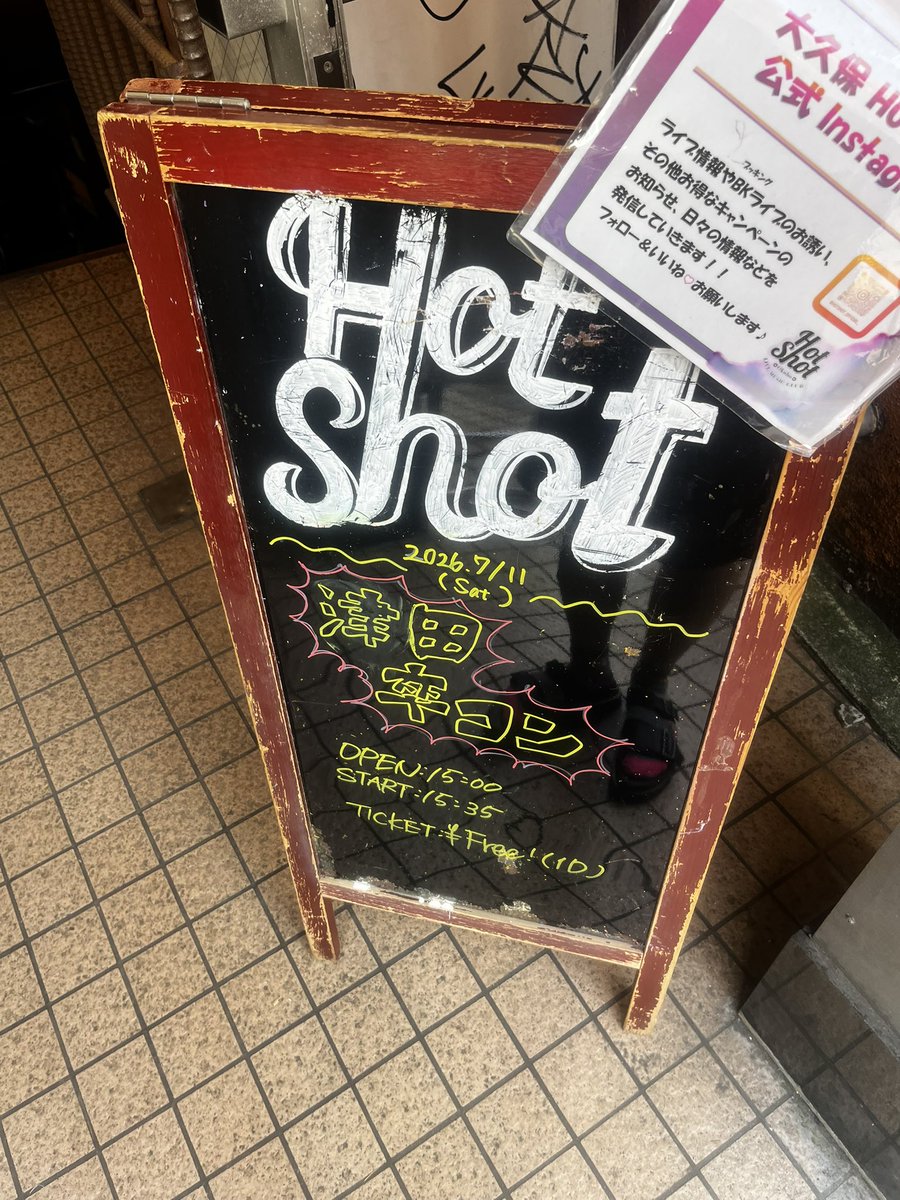 大久保 HO
公式 Instag
ライブ情報やBKライブのお誘い、
ブッキング
その他お得なキャンペーンの
お知らせ、日々の情報などを
発信していきます！！
フォロー&いいね♡お願いします♪
Hot
Shot
Hot
Shot
2026.7/11
(Sat)
津田
寧コン
OPEN:15:00
START:15:35
TICKET:¥Free!(1D)